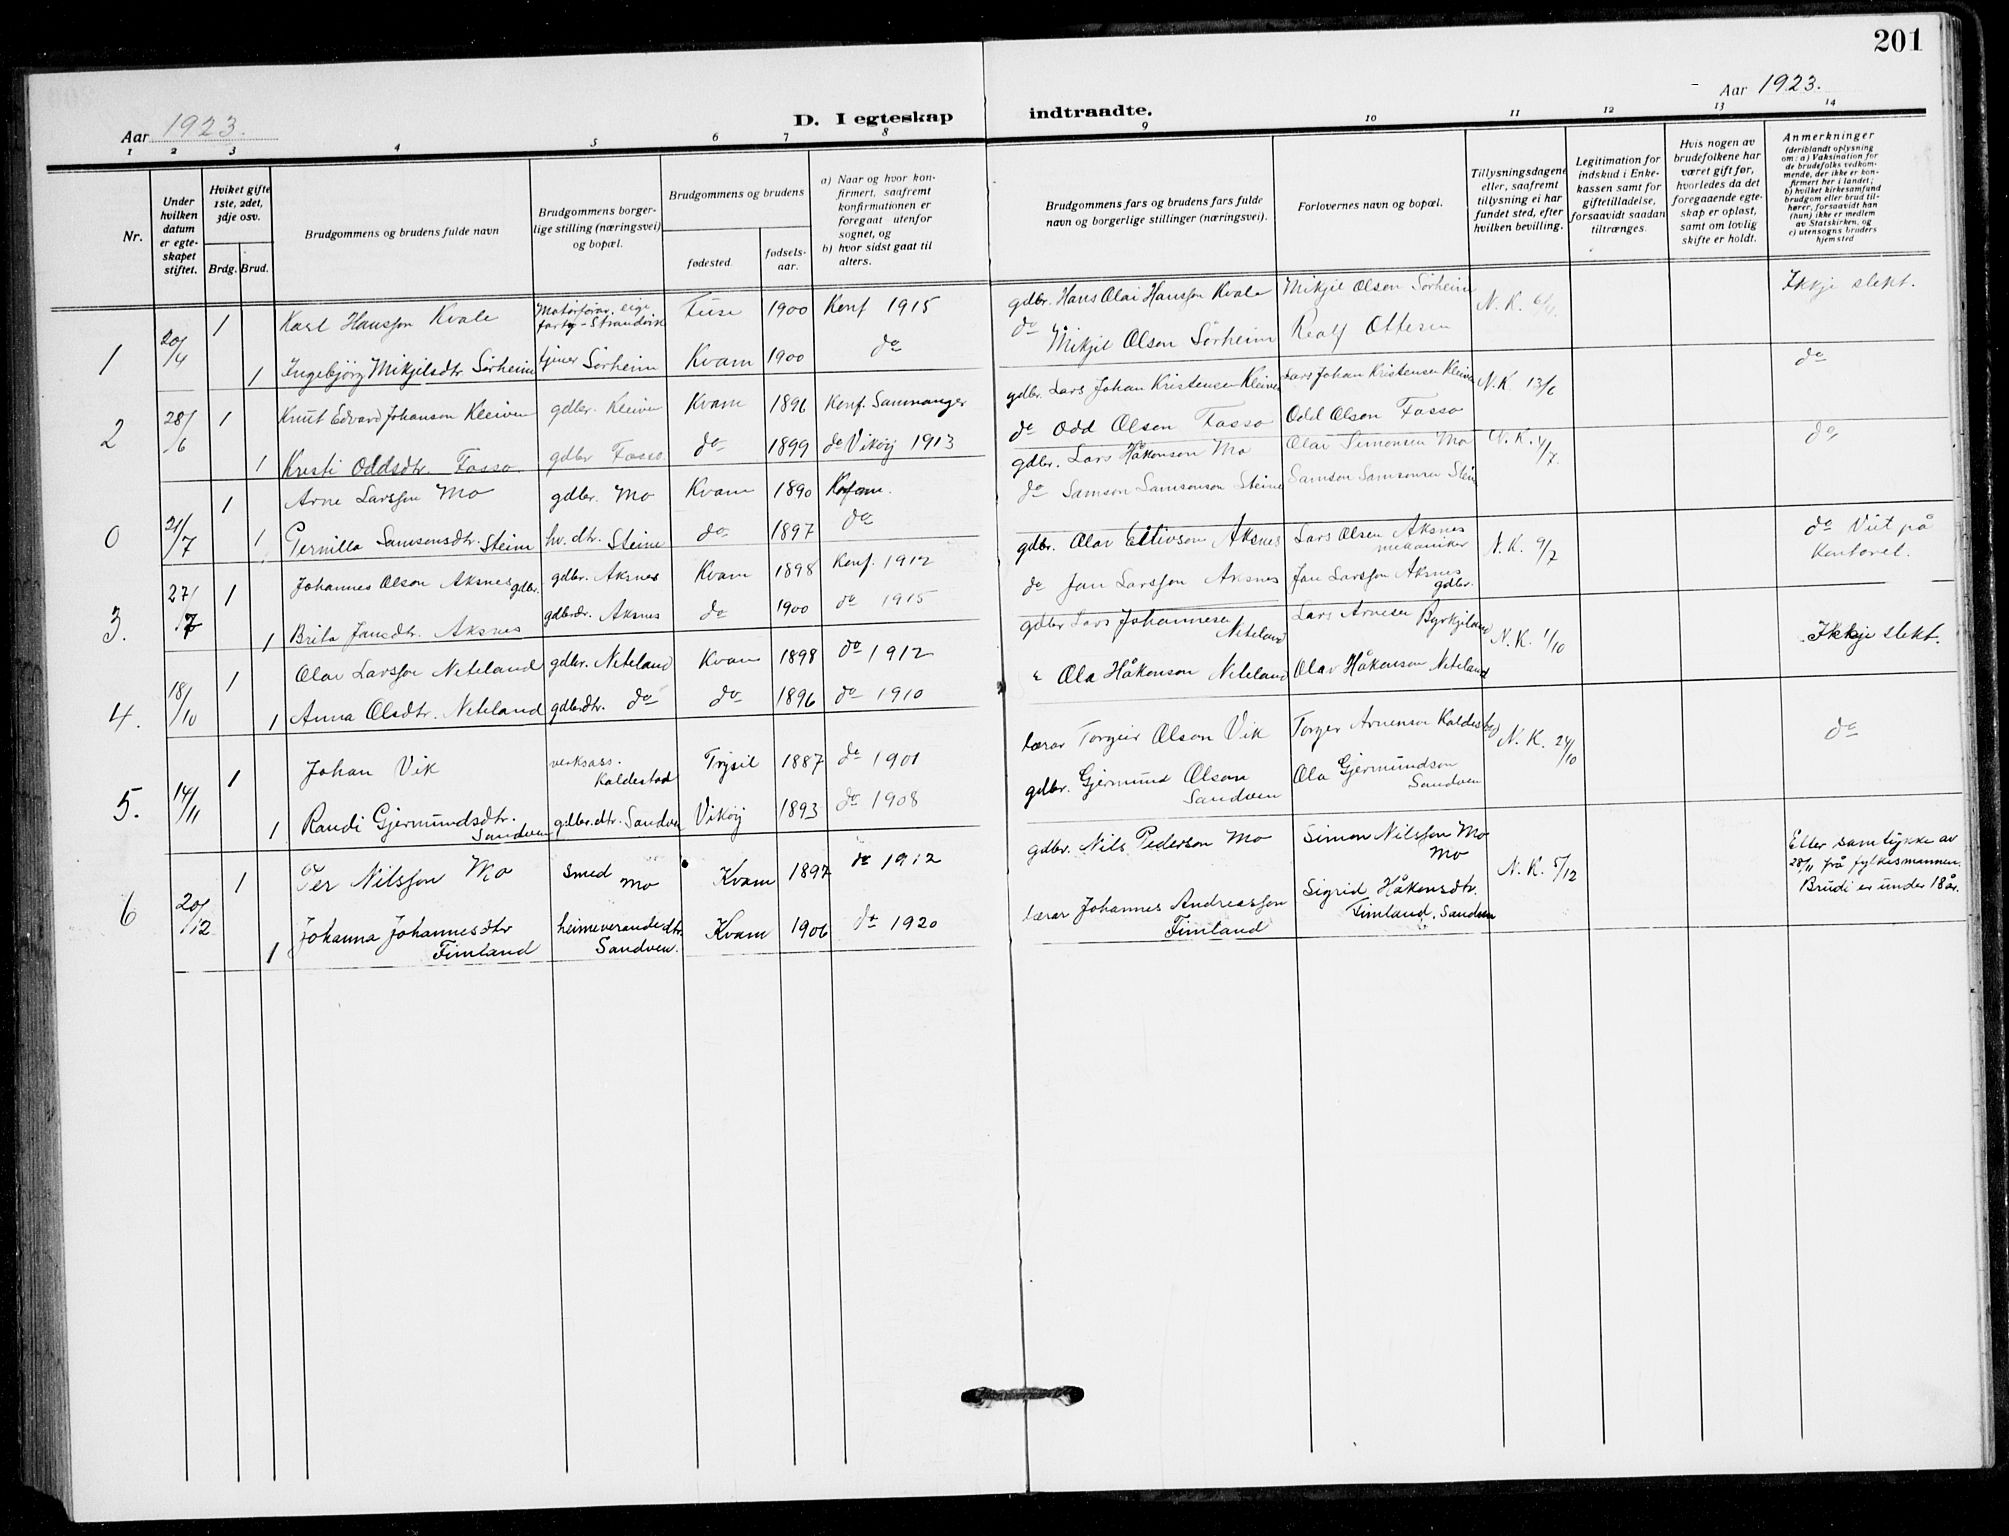 201
Aar 1923.
Aar 1923.
D. I egteskap indtraadte.
1 2 3 4 5 6 7 8 9 10 11 12 13 14
Nr.
Under hvilken datum er egteskapet stiftet.
Hviket gifte 1ste, 2det, 3dje osv.
Brdg. Brud.
Brudgommens og brudens fulde navn
Brudgommens borgerlige stilling (næringsvei) og bopæl.
Brudgommens og brudens
fødested.
fødselsaar.
a) Naar og hvor konfirmert, saafremt konfirmationen er foregaat utenfor sognet, og
b) hvor sidst gaat til alters.
Brudgommens fars og brudens fars fulde navn og borgerlige stillinger (næringsvei).
Forlovernes navn og bopæl.
Tillysningsdagene eller, saafremt tillysning ei har fundet sted, efter hvilken bevilling.
Legitimation for indskud i Enkekassen samt for giftetilladelse, forsaavidt saadan tiltrænges.
Hvis nogen av brudefolkene har været gift før, hvorledes da det foregaaende egteskap er opløst, samt om lovlig skifte er holdt.
Anmerkninger
(deriblandt oplysning om: a) Vaksination for de brudefolks vedkommende, der ikke er konfirmert her i landet; b) hvilket kirkesamfund brudgom eller brud tilhører, forsaavidt han (hun) ikke er medlem av Statskirken, og c) utensogns bruders hjemsted
1 20/4 1 Karl Hansson Kvale Motorførar, eige farty - Strandvik Fuse 1900 Konf 1915 gdbr. Hans Olai Hansson Kvale Mikjel Olson Sørheim N. K. 6/4. Ikkje slekt.
1 Ingebjørg Mikjelsdtr Sørheim tjener Sørheim Kvam 1900 do do Mikjel Olson Sørheim Realf Ottesen
2 28/6 1 Knut Edvard Johanson Kleiven gdbr. Kleiven Kvam 1896 Konf. Samnanger gdbr. Lars Johan Kristensen Kleiven Lars Johan Kristensen Kleiven N.K 13/6 do
1 Kristi Oddsdtr. Fosso gdbr Fosso do 1899 do Vikøy 1913 do Odd Olson Fosso Odd Olson Fosso
0 21/7 1 Arne Larsson Mo gdbr. Mo Kvam 1890 Konf. gdbr. Lars Håkonson Mo Olav Simonsen Mo N. K. 4/7. do
1 Pernilla Samsonsdtr. Steine hv. dtr. Steine do 1897 do do Samson Samsonson Steine Samson Samsonson Stein
3. 27/7 1 Johannes Olson Aksnes gdbr. gdbr. Aksnes Kvam 1898 Konf. 1912 gdbr. Olav Ellivson Aksnes Lars Olsen Aksnes mekaniker N. K. 9/7 do Viet på Kontoret.
1 Brita Jansdtr. Aksnes gdbrdtr. Aksnes do 1900 do 1915 do Jan Larsson Aksnes Jan Larsson Aksnes gdbr.
4. 18/10 1 Olav Larsson Neteland gdbr. Neteland Kvam 1898 do 1912 gdbr Lars Johannesen Neteland Lars Arnesen Byrkjeland N. K. 1/10 Ikkje slekt.
1 Anna Olsdtr. Neteland gdbrdtr. do do 1896 do 1910 " Ola Håkonson Neteland Olav Håkonson Neteland
5. 14/11 1 Johan Vik verksass. Kaldestad Trysil 1887 do 1901 lærar Torgeir Olson Vik Torgeir Arneson Kaldestad N. K. 24/10 do
1 Randi Gjermundsdtr. Sandven gdbr.dtr. Sandven Vikøy 1893 do 1908 gdbr. Gjermund Olson Sandven Ola Gjermundson Sandven
6 20/12 1 Per Nilsson Mo smed Mo Kvam 1897 do 1912 gdbr. Nils Pederson Mo Simon Nilsson Mo Mo N. K. 5/12 Etter samtykke av 28/11 frå fylkesmannen. Brudi er under 18 år.
1 Johanna Johannesdtr Fimland heimeverande dtr. Sandven. Kvam 1906 do 1920 lærar Johannes Andreasson Fimland Sigrid Håkonsdtr. Fimland, Sandven